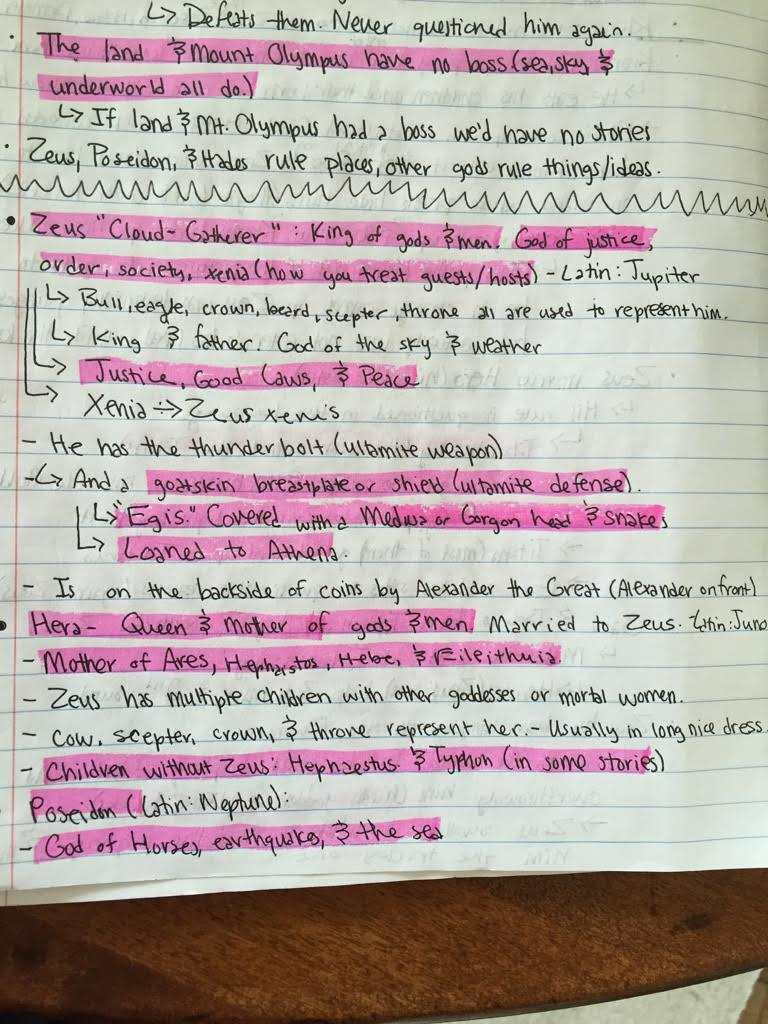 ↳ Defeats them. Never questioned him again.
• The land & Mount Olympus have no boss (sea, sky &
underworld all do.)
↳ If land & Mt. Olympus had a boss we'd have no stories
• Zeus, Poseidon, & Hades rule places, other gods rule things/ideas.
• Zeus "Cloud-Gatherer": King of gods & men. God of justice,
order, society, xenia (how you treat guests/hosts) - Latin: Jupiter
↳ Bull, eagle, crown, beard, scepter, throne all are used to represent him.
↳ King & father. God of the sky & weather
↳ Justice, Good Laws, & Peace
↳ Xenia → Zeus xenis
- He has the thunderbolt (ultamite weapon)
-↳ And a goatskin breastplate or shield (ultamite defense).
↳ "Egis." Covered with a Medusa or Gorgon head & snakes
↳ Loaned to Athena.
- Is on the backside of coins by Alexander the Great (Alexander on front)
• Hera - Queen & Mother of gods & men. Married to Zeus. Latin: Juno
- Mother of Ares, Hephaistos, Hebe, & Eileithuia
- Zeus has multiple children with other goddesses or mortal women.
- Cow, scepter, crown, & throne represent her. - Usually in long nice dress.
- Children without Zeus: Hephaestus & Typhon (in some stories)
Poseidon (Latin: Neptune):
- God of Horses, earthquakes, & the sea